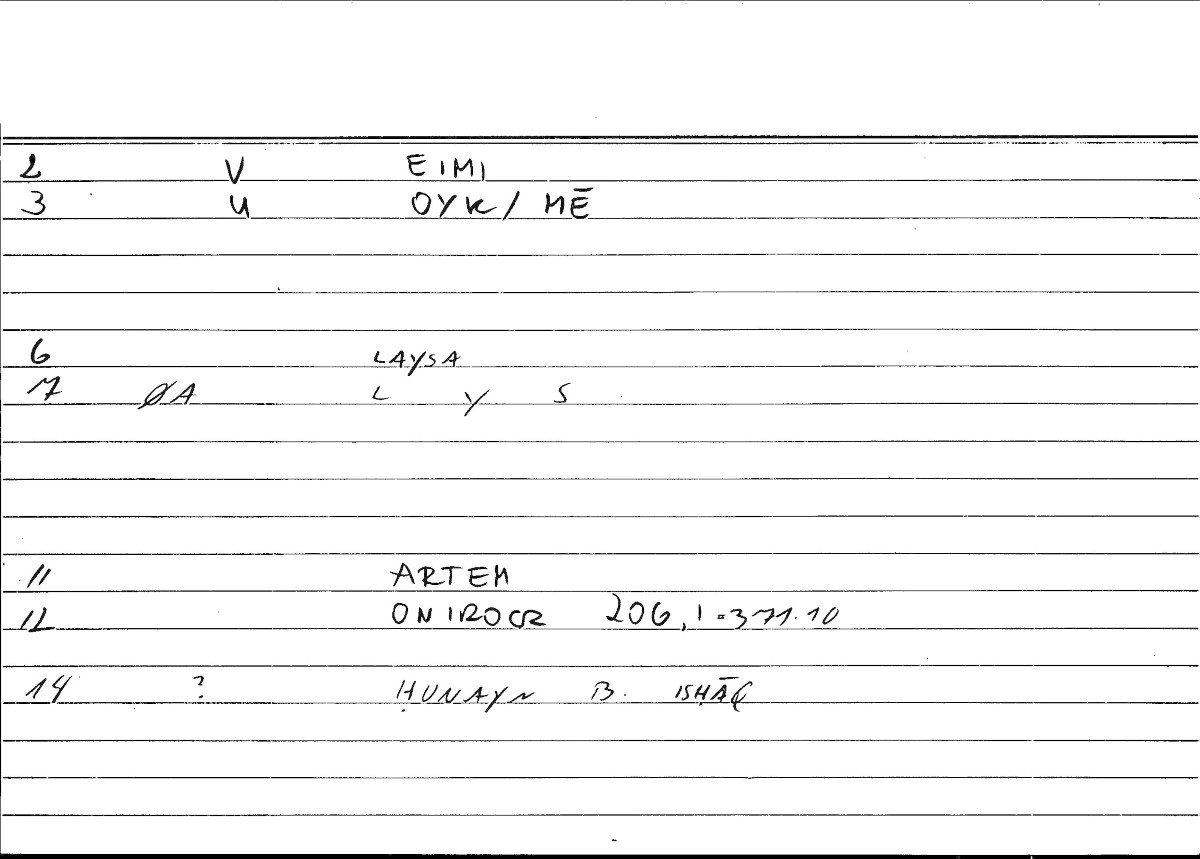 2 V EIMI
3 U OYK/ MĒ
6 LAYSA
7 ØA L Y S
11 ARTEM
12 ONIROCR 206,1=371.10
14 ? ḤUNAYN B. ISḤĀQ